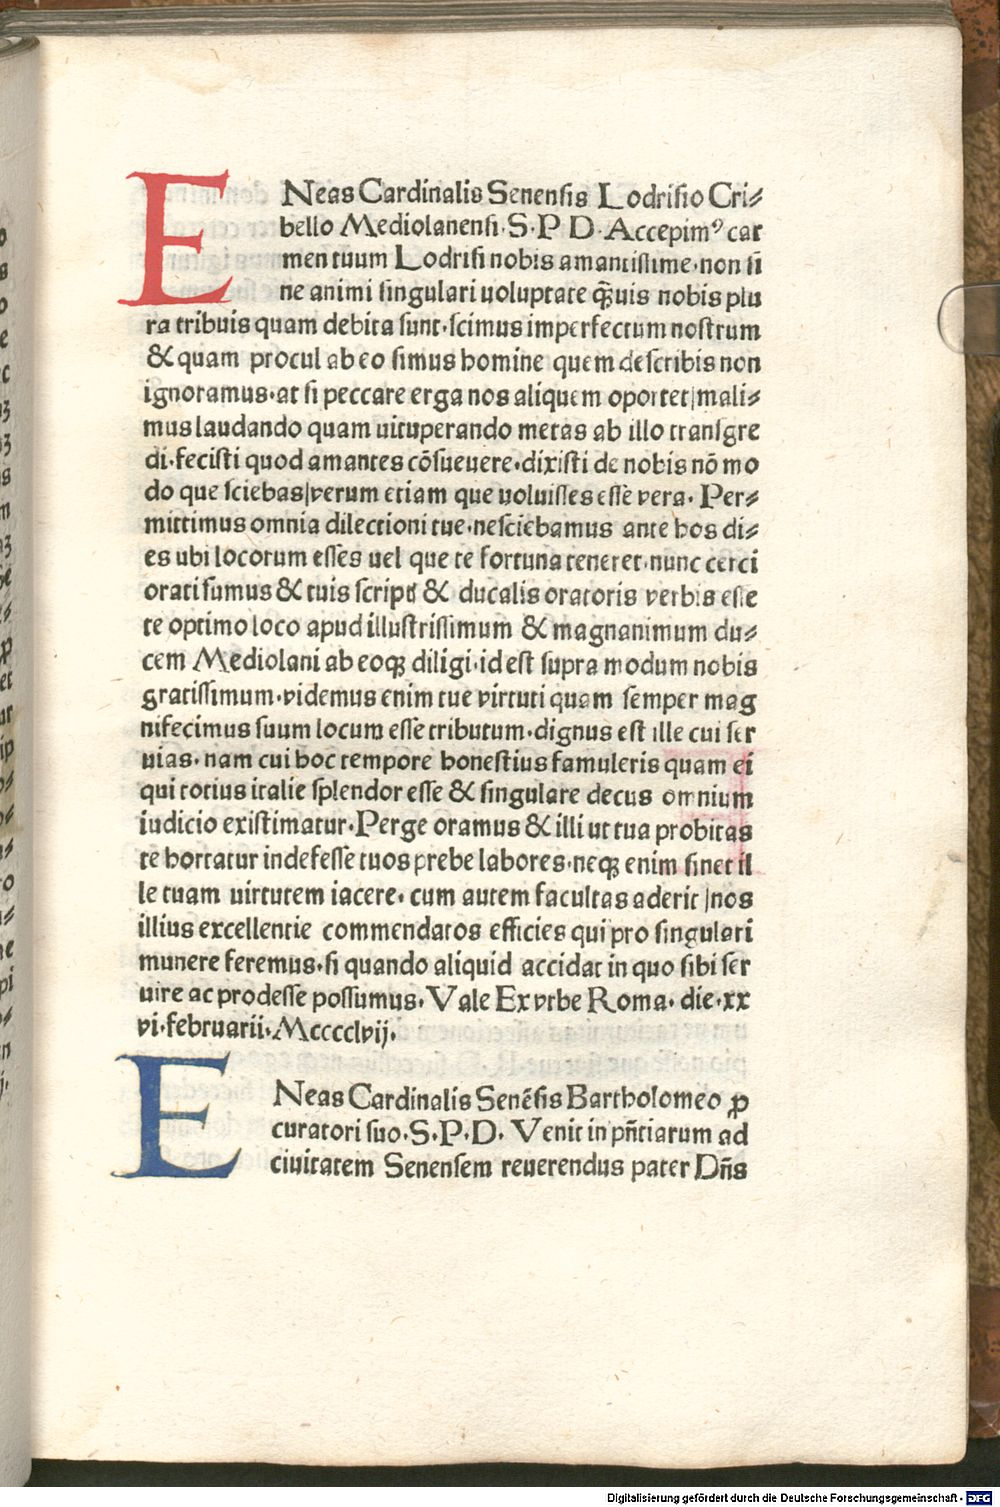 ENeas Cardinalis Senensis Lodrisio Cri⸗
bello Mediolanensi·S·P D·Accepimꝰ car
men tuum Lodrisi nobis amantissime·non sī
ne animi singulari uoluptate qꝫuis nobis plu
ra tribuis quam debita sunt·scimus imperfectum nostrum
& quam procul ab eo simus homine quem describis non
ignoramus·at si peccare erga nos aliquem oportet|mali⸗
mus laudando quam uituperando metas ab illo transgre
di·fecisti quod amantes cōsueuere·dixisti de nobis nō mo
do que sciebas|verum etiam que uoluisses esse vera· Per⸗
mittimus omnia dilectioni tue·nesciebamus ante hos di⸗
es ubi locorum esses uel que te fortuna teneret·nunc certi
orati sumus & tuis scriptꝭ & ducalis oratoris verbis esse
te optimo loco apud illustrissimum & magnanimum du⸗
cem Mediolani ab eoqꝫ diligi·id est supra modum nobis
gratissimum·videmus enim tue virtuti quam semper mag
nifecimus suum locum esse tributum·dignus est ille cui ser
uias· nam cui hoc tempore honestius famuleris quam ei
qui totius italie splendor esse & singulare decus omnium
iudicio existimatur·Perge oramus & illi ut tua probitas
te hortatur indefesse tuos prebe labores·neqꝫ enim sinet il
le tuam uirtutem iacere· cum autem facultas aderit|nos
illius excellentie commendatos efficies qui pro singulari
munere feremus·si quando aliquid accidat in quo sibi ser
uire ac prodesse possumus· Vale Ex vrbe Roma· die·xx
vi·februarii·Mcccclvij·
ENeas Cardinalis Senēsis Bartholomeo ꝓ
curatori suo·S·P·D· Venit in pn̄tiarum ad
ciuitatem Senensem reuerendus pater Dn̄s
Digitalisierung gefördert durch die Deutsche Forschungsgemeinschaft - DFG